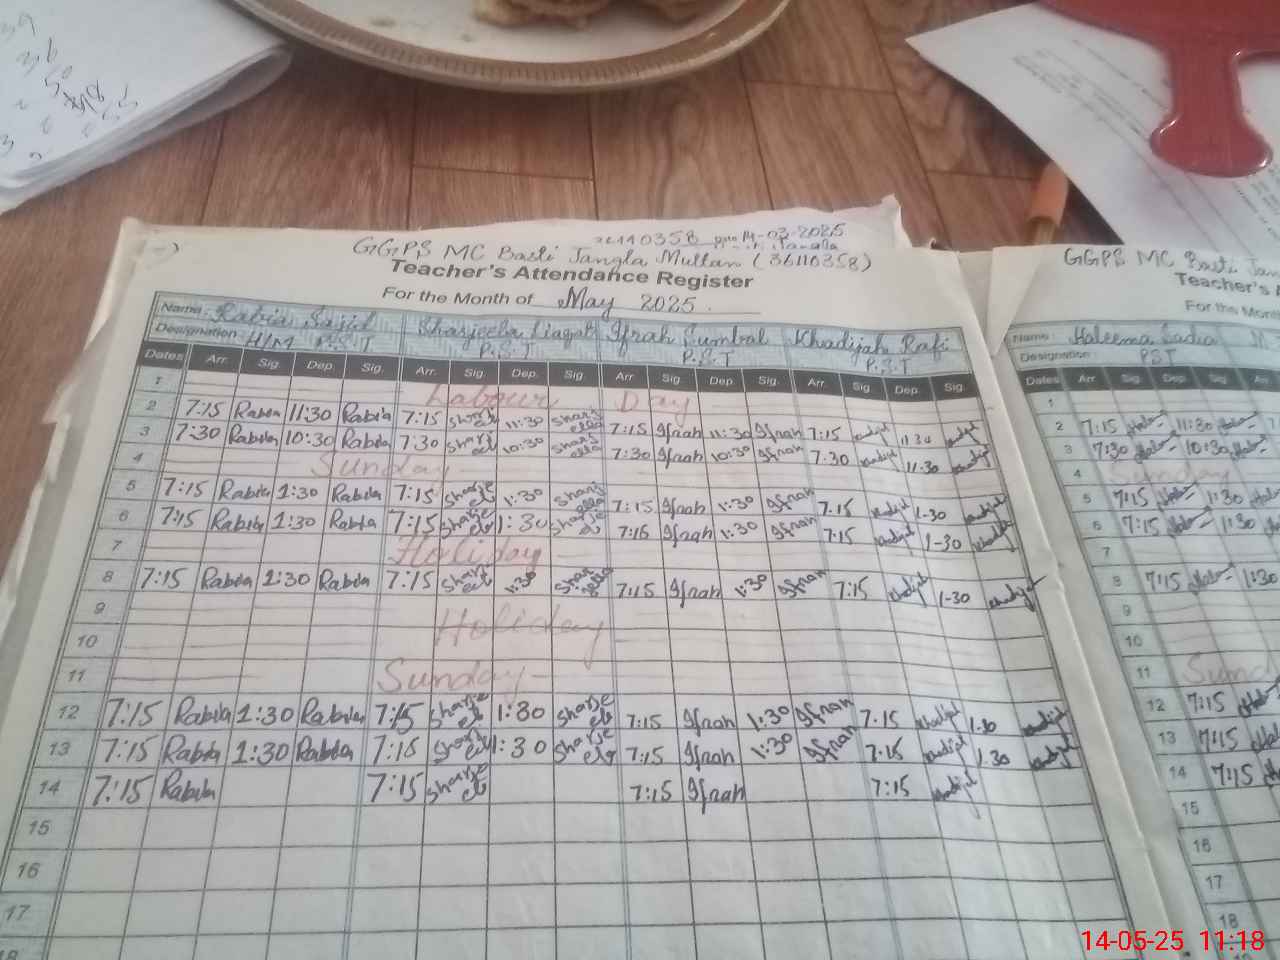 36110358 14-03-2025
GGPS MC Basti Jangla Multan (36110358)
Teacher's Attendance Register
For the Month of May 2025
Name Rabia Sajid Sharjeela Liaqat Ifrah Sumbal Khadijah Rafi
Designation H/M P.S.T P.S.T P.S.T P.S.T
Dates Arr. Sig. Dep. Sig. Arr. Sig. Dep. Sig. Arr. Sig. Dep. Sig. Arr. Sig. Dep. Sig.
1 Labour Day
2 7:15 Rabila 11:30 Rabila 7:15 Sharjeela 11:30 Sharjeela 7:15 Ifrah 11:30 Ifrah 7:15 Khadijah 11:30 Khadijah
3 7:30 Rabila 10:30 Rabila 7:30 Sharjeela 10:30 Sharjeela 7:30 Ifrah 10:30 Ifrah 7:30 Khadijah 11:30 Khadijah
4 Sunday
5 7:15 Rabila 1:30 Rabila 7:15 Sharjeela 1:30 Sharjeela 7:15 Ifrah 1:30 Ifrah 7:15 Khadijah 1-30 Khadijah
6 7:15 Rabila 1:30 Rabila 7:15 Sharjeela 1:30 Sharjeela 7:15 Ifrah 1:30 Ifrah 7:15 Khadijah 1-30 Khadijah
7 Holiday
8 7:15 Rabila 1:30 Rabila 7:15 Sharjeela 1:30 Sharjeela 7:15 Ifrah 1:30 Ifrah 7:15 Khadijah 1-30 Khadijah
9 Holiday
10
11 Sunday
12 7:15 Rabila 1:30 Rabila 7:15 Sharjeela 1:30 Sharjeela 7:15 Ifrah 1:30 Ifrah 7:15 Khadijah 1.30 Khadijah
13 7:15 Rabila 1:30 Rabila 7:15 Sharjeela 1:30 Sharjeela 7:15 Ifrah 1:30 Ifrah 7:15 Khadijah 1.30 Khadijah
14 7:15 Rabila 7:15 Sharjeela 7:15 Ifrah 7:15 Khadijah
15
16
17
18
GGPS MC Basti Jan
Teacher's A
For the Mont
Name Haleema Sadia
Designation PST
Dates Arr. Sig. Dep. Sig. Arr.
1
2 7:15 11:30
3 7:30 10:30
4 Sunday
5 7:15 1:30
6 7:15 1:30
7
8 7:15 1:30
9
10
11 Sund
12 7:15
13 7:15
14 7:15
15
16
17
18
14-05-25 11:18